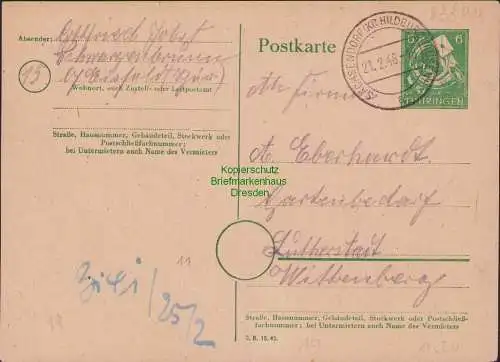 Absender: Gottwerth Jobst
Schwarzenbrunn
b/ Eisfeld (Thür)
15
Wohnort, auch Zustell- oder Leitpostamt
Straße, Hausnummer, Gebäudeteil, Stockwerk oder
Postschließfachnummer;
bei Untermietern auch Name des Vermieters
11
25/2
Postkarte
SACHSENDORF (KR. HILDBURGHAUSEN)
21.2.46
6 6
THÜRINGEN
An Firma
A. Eberhardt
Gartenbedarf
Lutherstadt
Wittenberg
Straße, Hausnummer, Gebäudeteil, Stockwerk oder Postschließ-
fachnummer; bei Untermietern auch Name des Vermieters
Kopierschutz
Briefmarkenhaus
Dresden